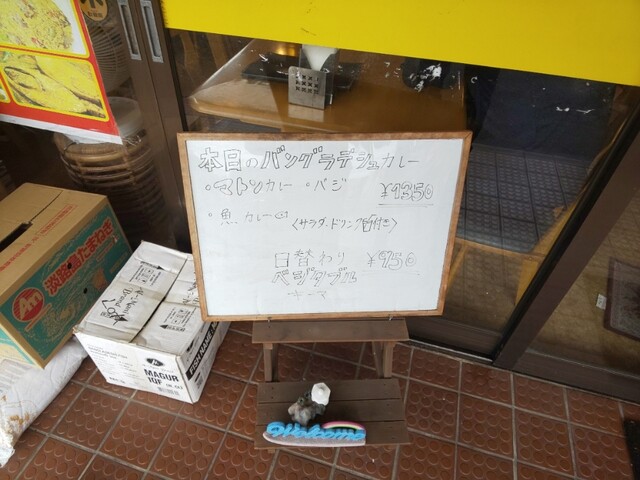 本日のバングラデシュカレー
・マトンカレー ・バジ ¥1350
・魚カレー
〈サラダ・ドリンク付き〉
日替わり ¥950
ベジタブル
キーマ
Welcome
MAGUR
IQF